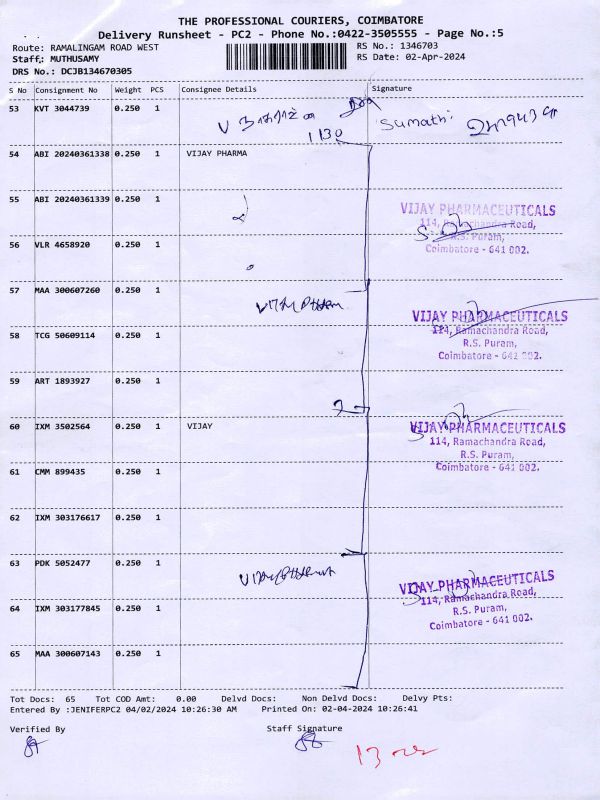 THE PROFESSIONAL COURIERS, COIMBATORE
Delivery Runsheet - PC2 - Phone No.:0422-3505555 - Page No.:5
Route: RAMALINGAM ROAD WEST
RS No.: 1346703
Staff: MUTHUSAMY
RS Date: 02-Apr-2024
DRS No.: DCJB134670305
S No Consignment No Weight PCS Consignee Details Signature
53 KVT 3044739 0.250 1
1130 Sumathi
54 ABI 20240361338 0.250 1 VIJAY PHARMA
55 ABI 20240361339 0.250 1
VIJAY PHARMACEUTICALS
114, Ramachandra Road,
R.S. Puram,
Coimbatore - 641 002.
56 VLR 4658920 0.250 1
57 MAA 300607260 0.250 1
VIJAY PHARMACEUTICALS
114, Ramachandra Road,
R.S. Puram,
Coimbatore - 641 002.
58 TCG 50609114 0.250 1
59 ART 1893927 0.250 1
60 IXM 3502564 0.250 1 VIJAY
VIJAY PHARMACEUTICALS
114, Ramachandra Road,
R.S. Puram,
Coimbatore - 641 002.
61 CMM 899435 0.250 1
62 IXM 303176617 0.250 1
63 PDK 5052477 0.250 1
VIJAY PHARMACEUTICALS
114, Ramachandra Road,
R.S. Puram,
Coimbatore - 641 002.
64 IXM 303177845 0.250 1
65 MAA 300607143 0.250 1
Tot Docs: 65 Tot COD Amt: 0.00 Delvd Docs: Non Delvd Docs: Delvy Pts:
Entered By :JENIFERPC2 04/02/2024 10:26:30 AM Printed On: 02-04-2024 10:26:41
Verified By Staff Signature
13